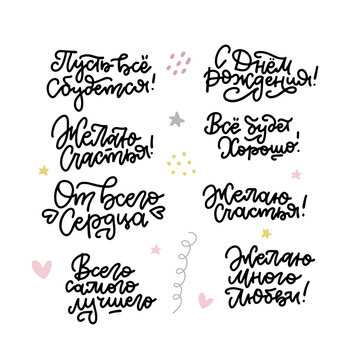 Пусть всё
сбудется!
С Днём
Рождения!
Желаю
Счастья!
Всё будет
Хорошо!
От всего
Сердца
Желаю
Счастья!
Всего
самого
лучшего
Желаю
много
Любви!